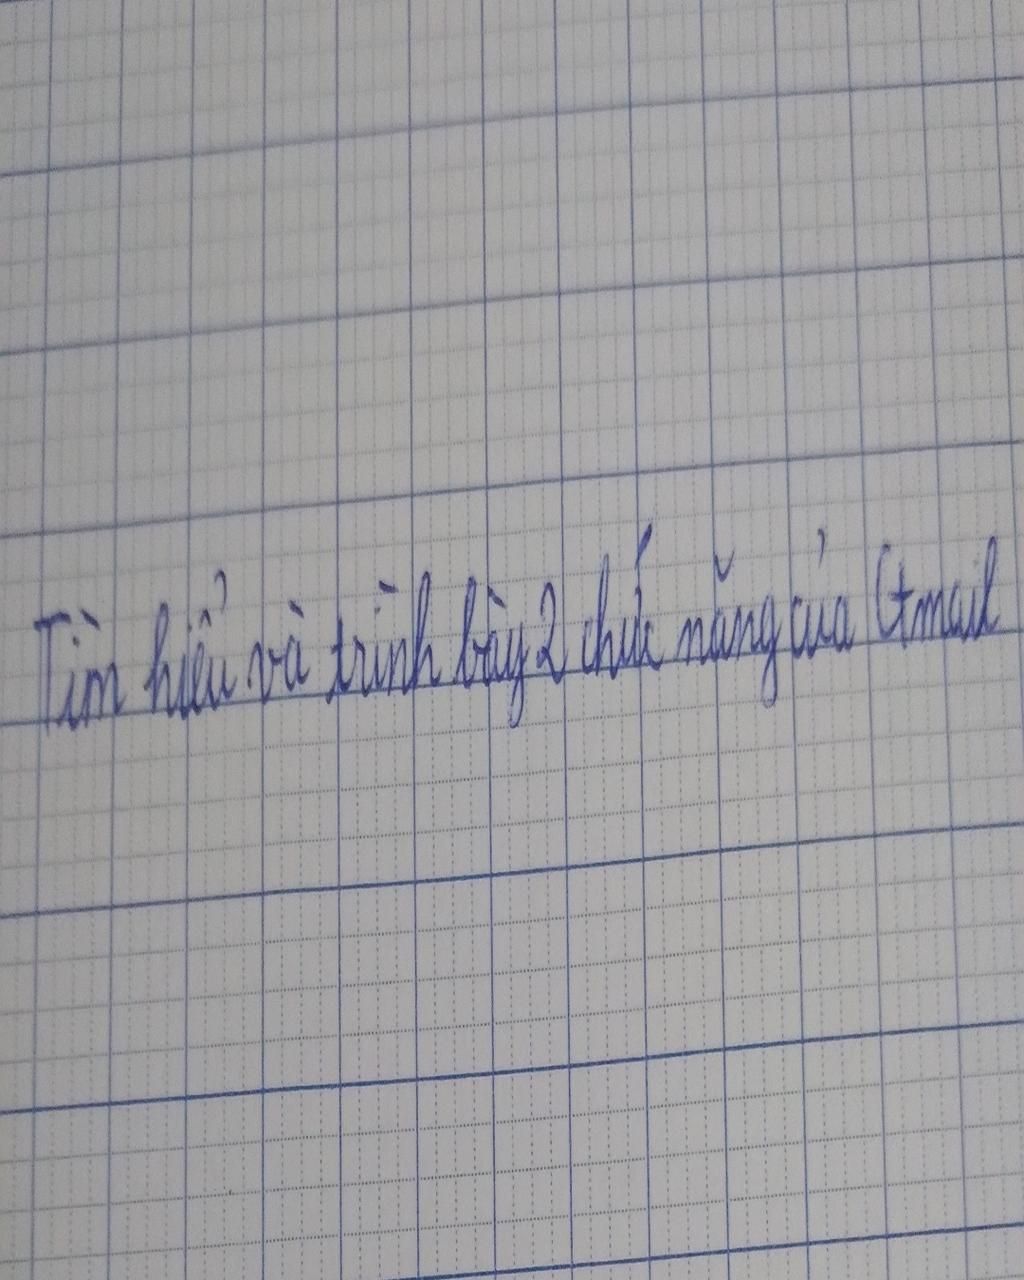 Tìm hiểu và trình bày 2 chức năng của Gmail